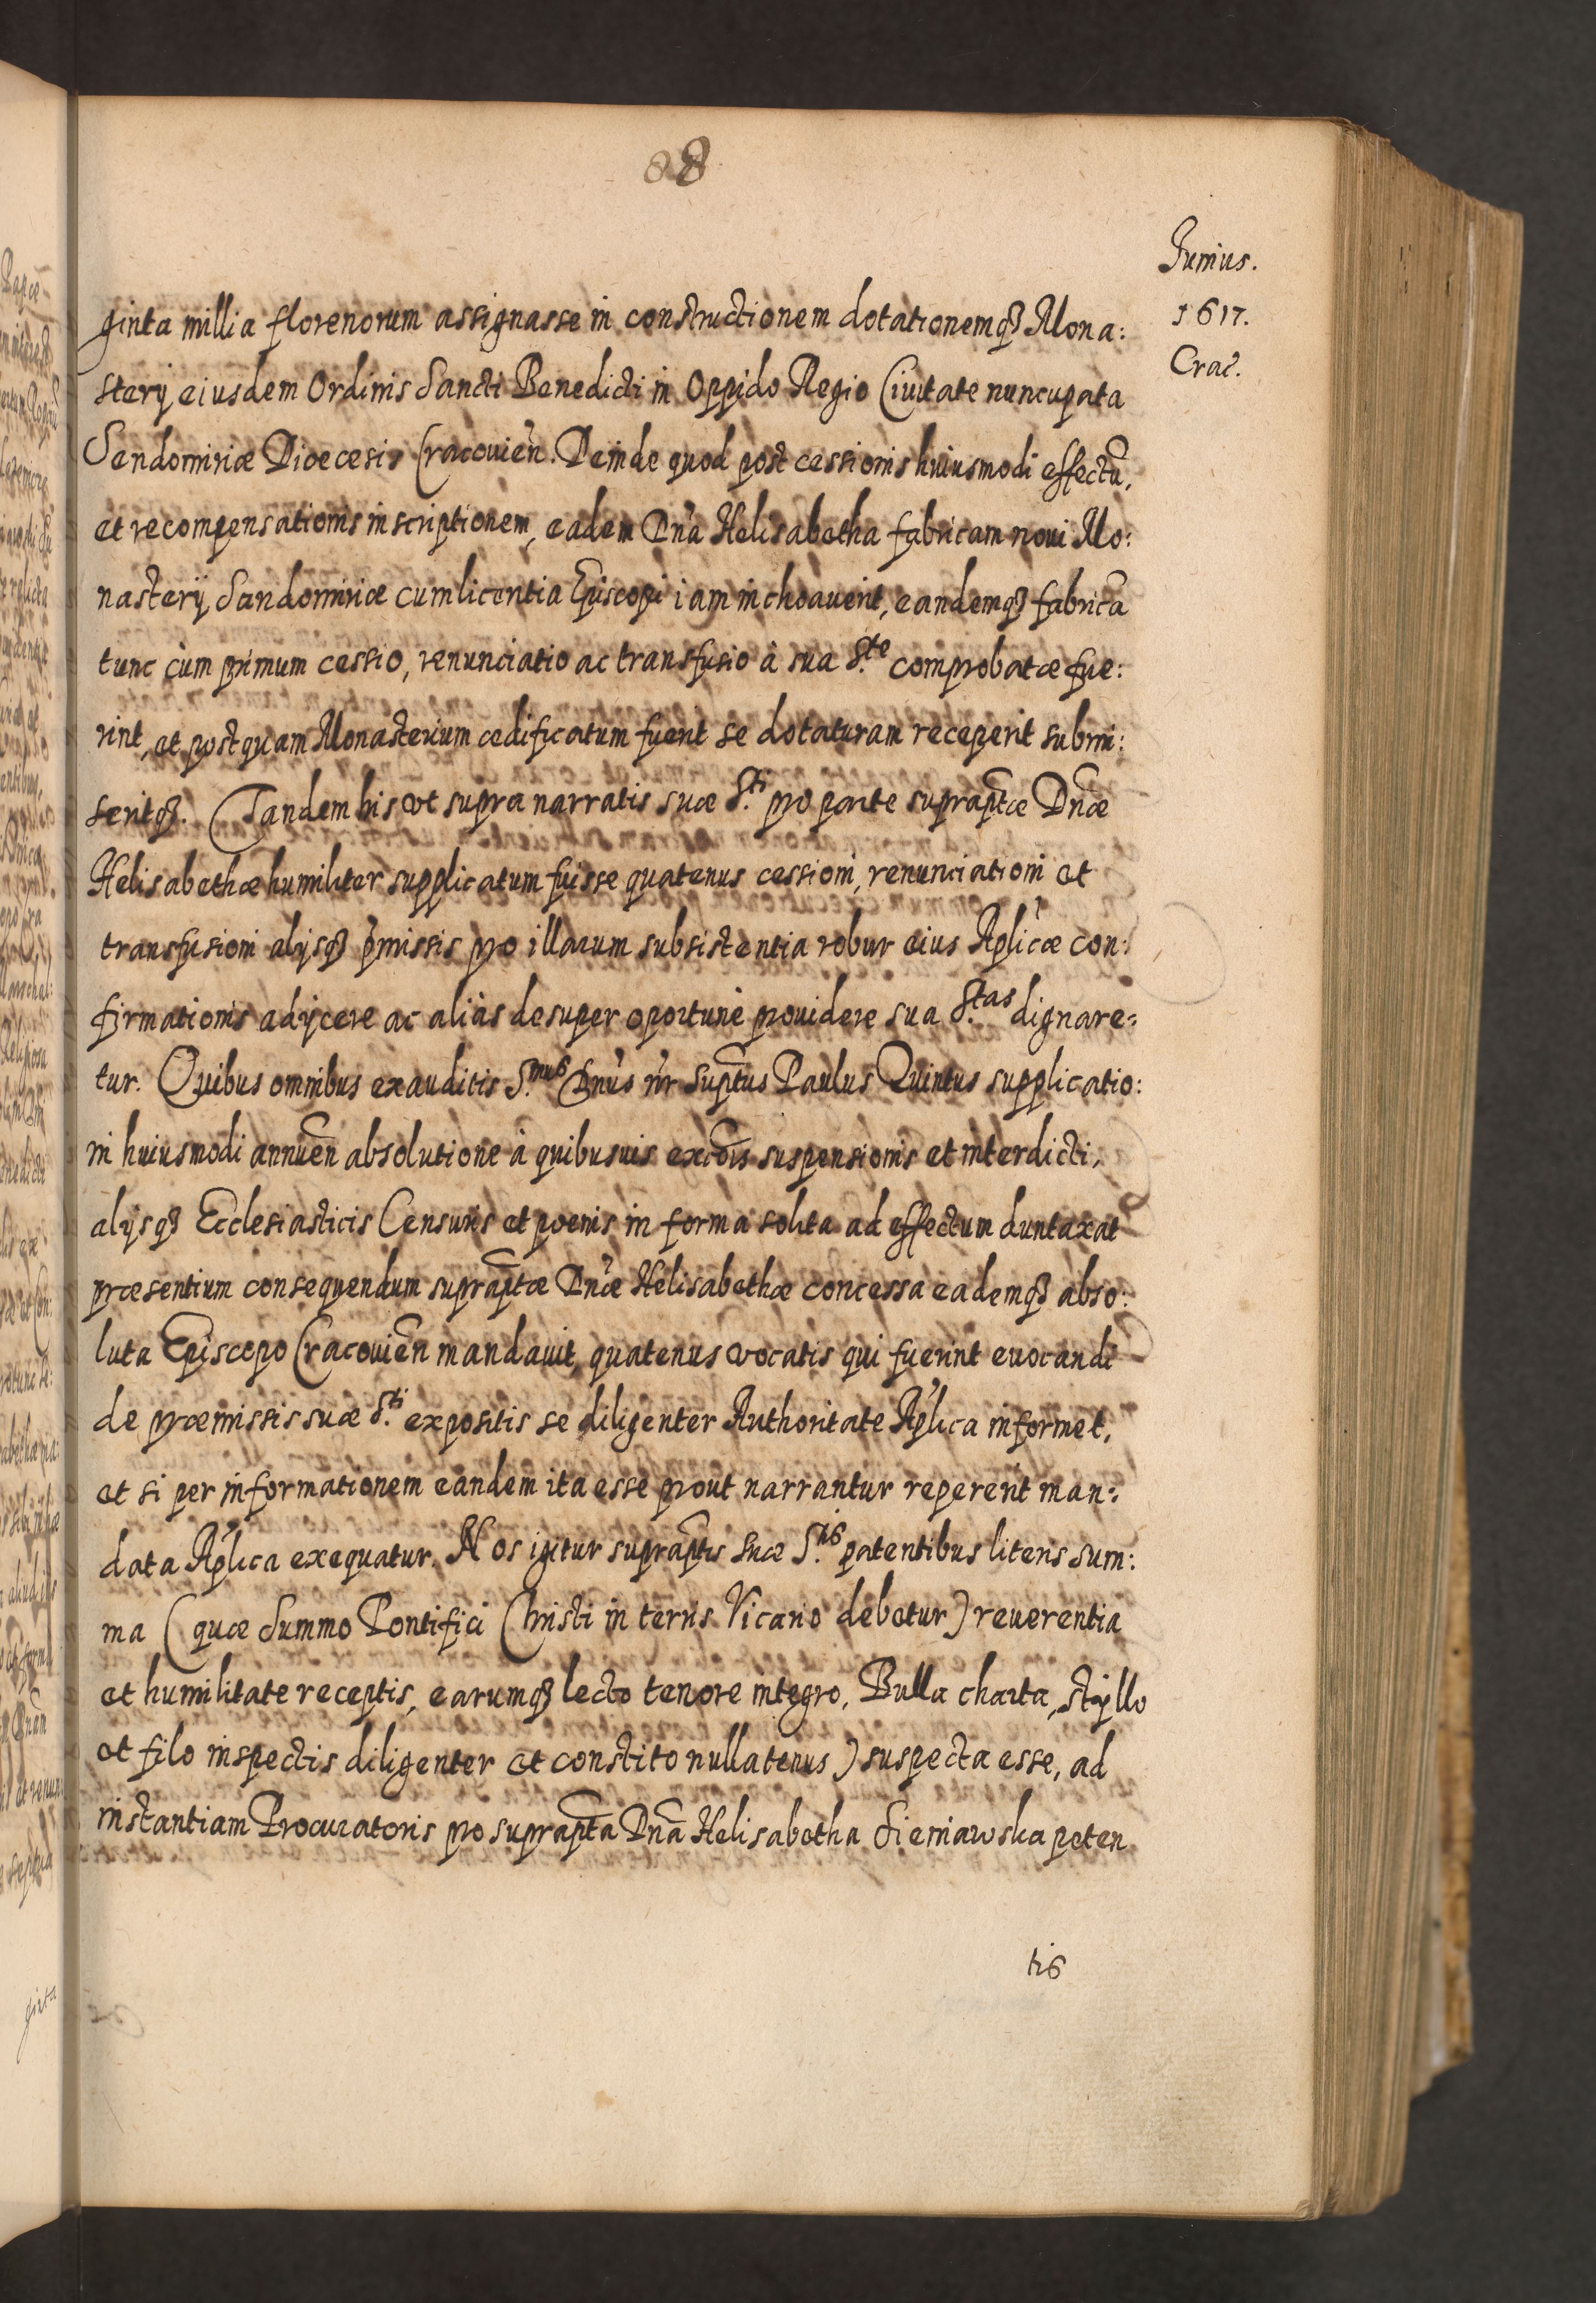 88
Junius.
1617.
Crac̃.
ginta millia florenorum assignasse in constructionem dotationemqȝ Mona:
sterij eiusdem Ordinis Sancti Benedicti in Oppido Regio Ciuitate nuncupata
Sendomiriæ Diœcesis Cracouien̄. Deinde quod post cessionis huiusmodi effectũ,
et recompensationis inscriptionem, eadem Dn̄a Helisabetha fabricam noui Mo:
nasterij Sandomiriæ cum licentia Episcopi iam inchoauerit, eandemqȝ fabricã
tunc cùm primum cessio, renunciatio ac transfusio à sua S.te comprobatæ fue:
rint, et postquam Monasterium ædificatum fuerit se dotaturam receperit submi:
seritqȝ. Tandem his vt supra narratis suæ S.ti pro parte suprap̃tæ Dn̄æ
Helisabethæ humiliter supplicatum fuisse quatenus cessioni, renunciationi et
transfusioni alijsqȝ p̃missis pro illarum subsistentia robur eius Ap̃licæ con:
firmationis adijcere ac aliàs desuper oportunè prouidere sua S.tas dignare:
tur. Quibus omnibus exauditis S.mus Dn̄us nr̄ sup̃tus Paulus Quintus supplicatio:
ni huiusmodi annuen̄ absolutione à quibusuis excõis suspensionis et interdicti,
alijsqȝ Ecclesiasticis Censuris et pœnis in forma solita ad effectum duntaxat
præsentium consequendum suprap̃tæ Dn̄æ Helisabethæ concessa eademqȝ abso:
luta Episcopo Cracouien̄ mandauit, quatenus vocatis qui fuerint euocandi
de præmissis suæ S.ti expositis se diligenter Authoritate Ap̃lica informet,
et si per informationem eandem ita esse prout narrantur repererit man:
data Ap̃lica exequatur. Nos igitur suprap̃tis suæ S.tis patentibus literis sum:
ma (quæ Summo Pontifici Christi in terris Vicario debetur) reuerentia
et humilitate receptis, earumqȝ lecto tenore integro, Bulla charta, styllo
et filo inspectis diligenter et constito nullatenus) suspecta esse, ad
instantiam Procuratoris pro suprap̃ta Dn̄a Helisabetha Sieniawska peten
tis